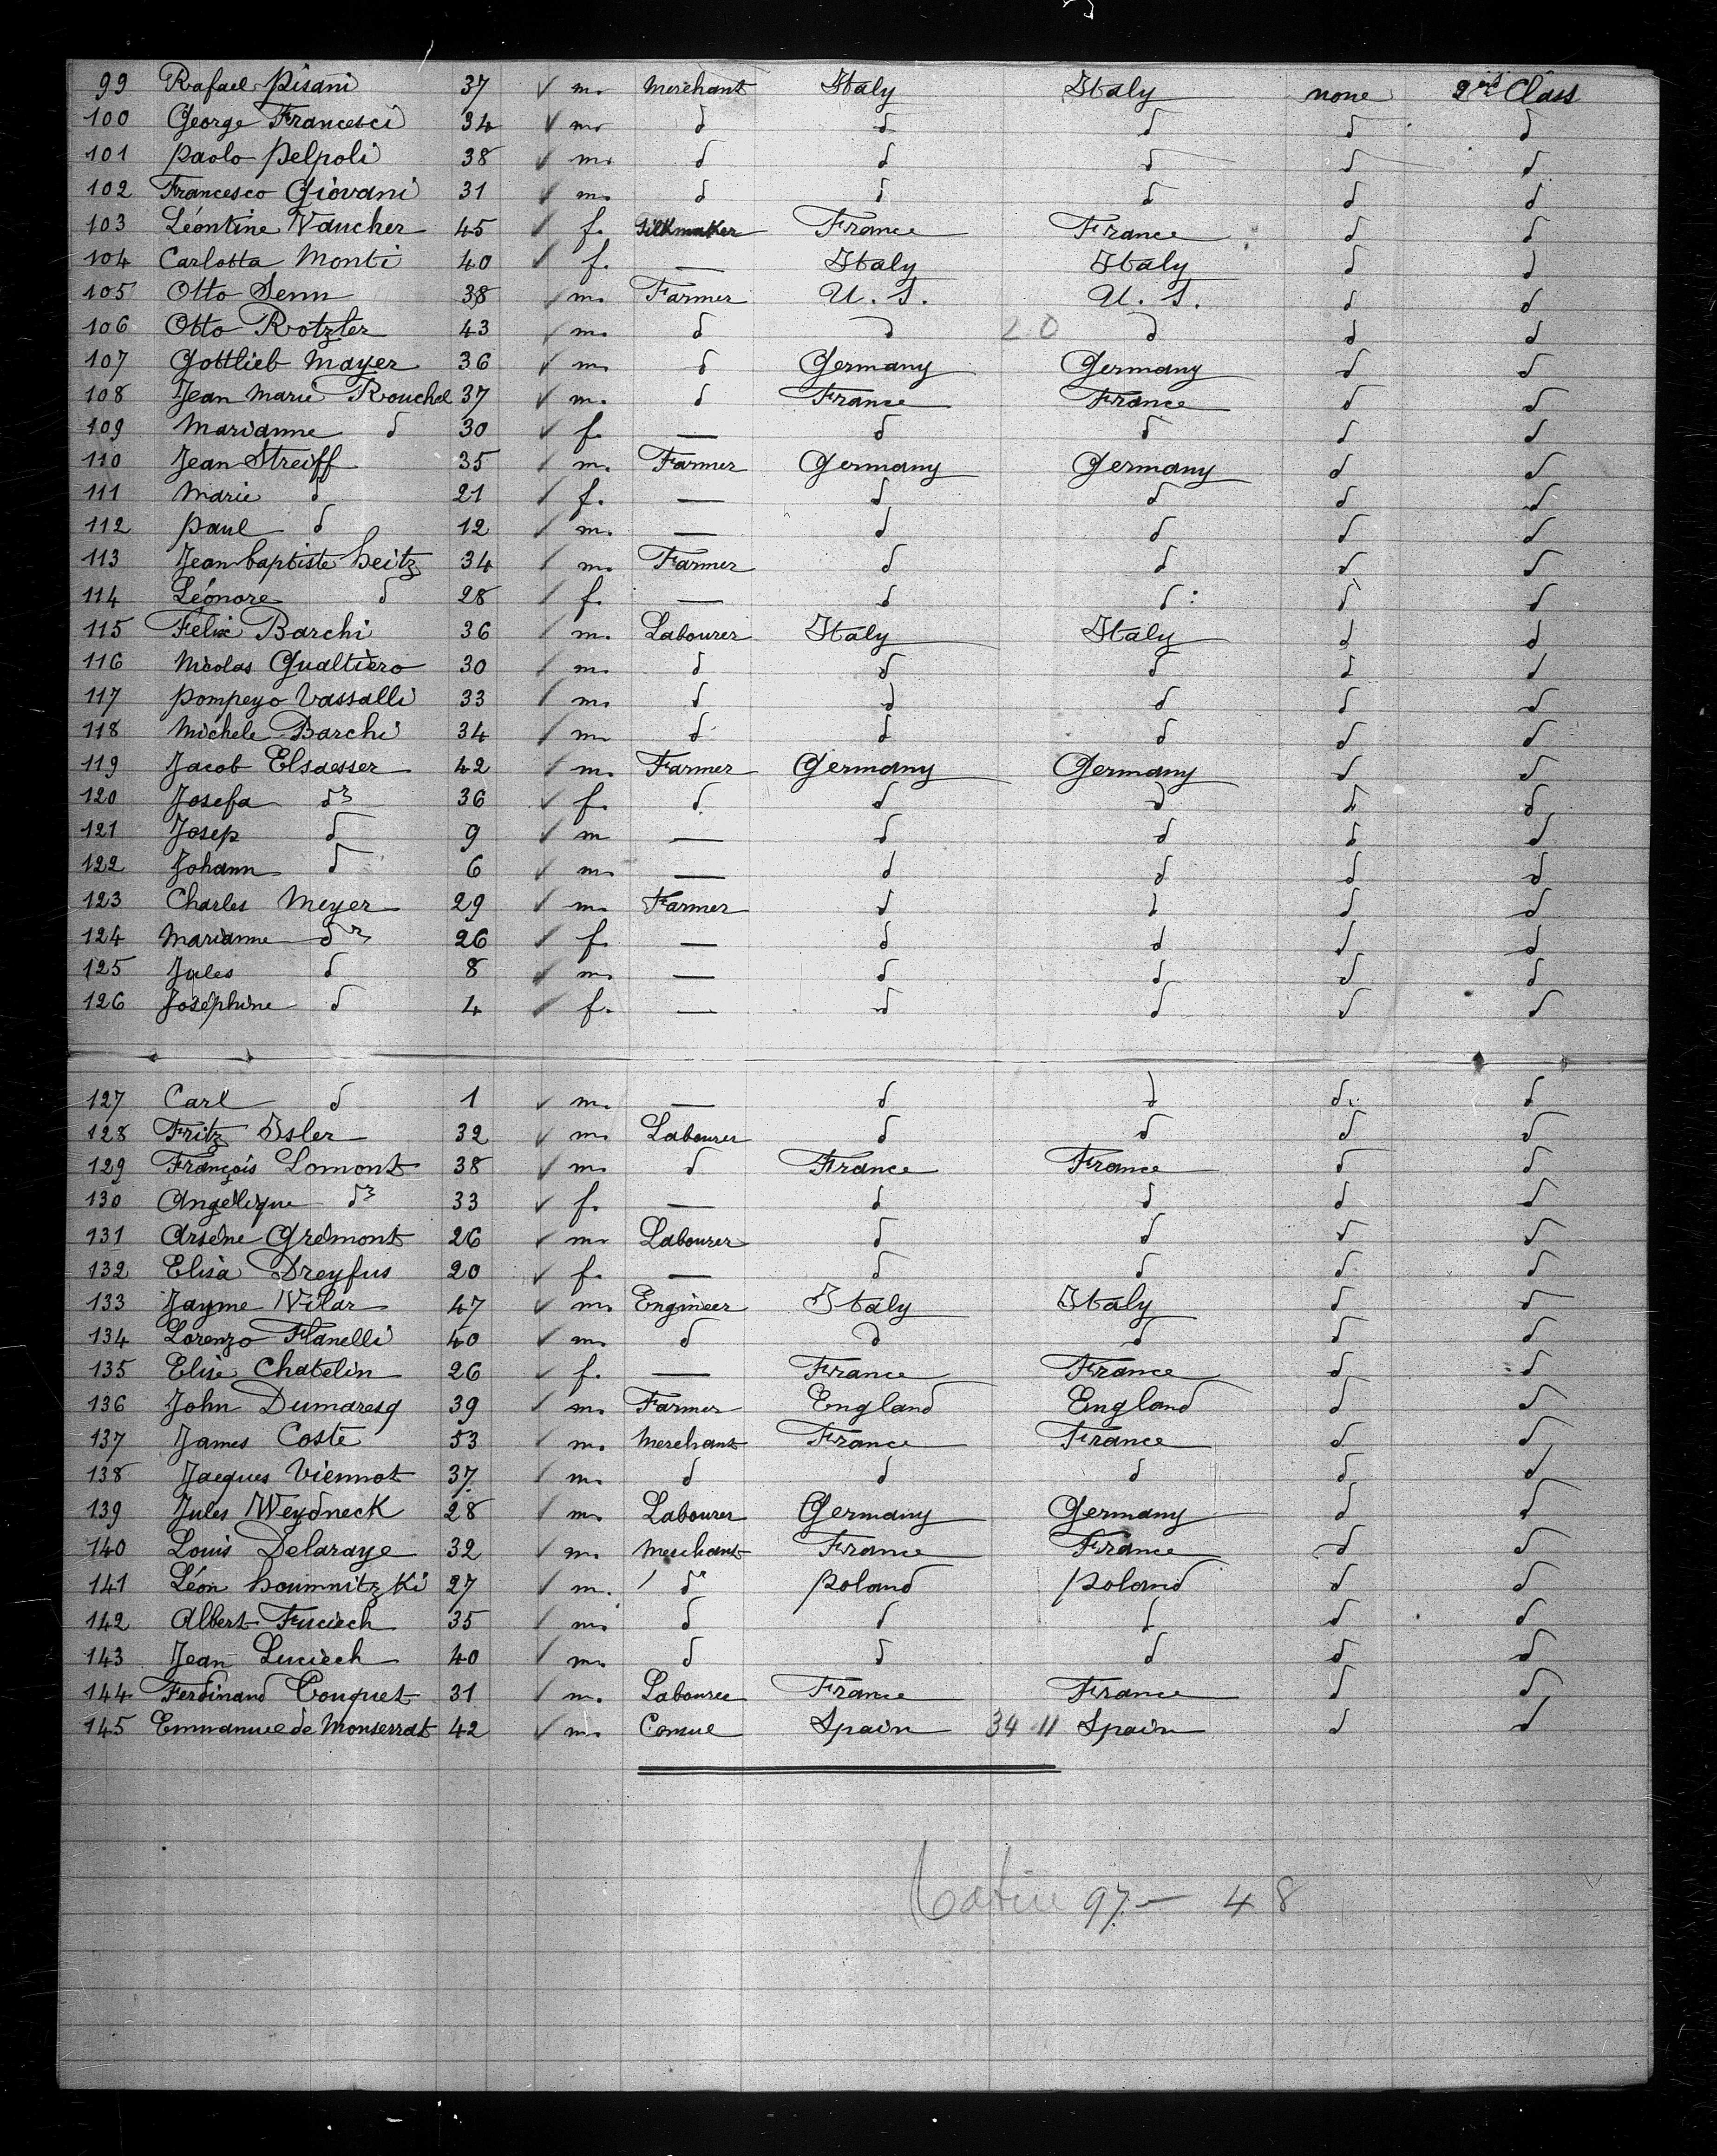 99 Rafael Pisani 37 ✓ m. Merchant Italy Italy none 2nd Class
100 George Francesci 34 ✓ m. d d d d d
101 Paolo Pelpoli 38 ✓ m. d d d d d
102 Francesco Giovani 31 ✓ m. d d d d d
103 Léontine Vaucher 45 ✓ f. Silkmaker France France d d
104 Carlotta Monti 40 ✓ f. — Italy Italy d d
105 Otto Senn 38 ✓ m. Farmer U. S. U. S. d d
106 Otto Rotzler 43 ✓ m. d d 20 d d d
107 Gottlieb Mayer 36 ✓ m. d Germany Germany d d
108 Jean Marie Rouchel 37 ✓ m. d France France d d
109 Marianne d 30 ✓ f. — d d d d
110 Jean Streiff 35 ✓ m. Farmer Germany Germany d d
111 Marie d 21 ✓ f. — d d d d
112 Paul d 12 ✓ m. — d d d d
113 Jean baptiste Heitz 34 ✓ m. Farmer d d d d
114 Léonore d 28 ✓ f. — d d d d
115 Felix Barchi 36 ✓ m. Labourer Italy Italy d d
116 Nicolas Gualtiero 30 ✓ m. d d d d d
117 Pompeyo Vassalli 33 ✓ m. d d d d d
118 Michele Barchi 34 ✓ m. d d d d d
119 Jacob Elsaesser 42 ✓ m. Farmer Germany Germany d d
120 Josefa d 36 ✓ f. d d d d d
121 Josep d 9 ✓ m — d d d d
122 Johann d 6 ✓ m. — d d d d
123 Charles Meyer 29 ✓ m. Farmer d d d d
124 Marianne d 26 ✓ f. — d d d d
125 Jules d 8 ✓ m. — d d d d
126 Joséphine d 4 ✓ f. — d d d d
127 Carl d 1 ✓ m. — d d d d
128 Fritz Isler 32 ✓ m. Labourer d d d d
129 François Lomont 38 ✓ m. d France France d d
130 Angélique d 33 ✓ f. — d d d d
131 Arsène Grémont 26 ✓ m. Labourer d d d d
132 Elisa Dreyfus 20 ✓ f. — d d d d
133 Jayme Vilar 47 ✓ m. Engineer Italy Italy d d
134 Lorenzo Flanelli 40 ✓ m. d d d d d
135 Elise Chatelin 26 ✓ f. — France France d d
136 John Dumaresq 39 ✓ m. Farmer England England d d
137 James Coste 53 ✓ m. Merchant France France d d
138 Jacques Viennot 37 ✓ m. d d d d d
139 Jules Weydneck 28 ✓ m. Labourer Germany Germany d d
140 Louis Delaraye 32 ✓ m. Merchant France France d d
141 Léon Houmnitzki 27 ✓ m. d Poland Poland d d
142 Albert Fuciech 35 ✓ m. d d d d d
143 Jean Luciech 40 ✓ m. d d d d d
144 Ferdinand Couquet 31 ✓ m. Labourer France France d d
145 Emmanuel de Monserrat 42 ✓ m. Consul Spain 34 11 Spain d d
97 — 48